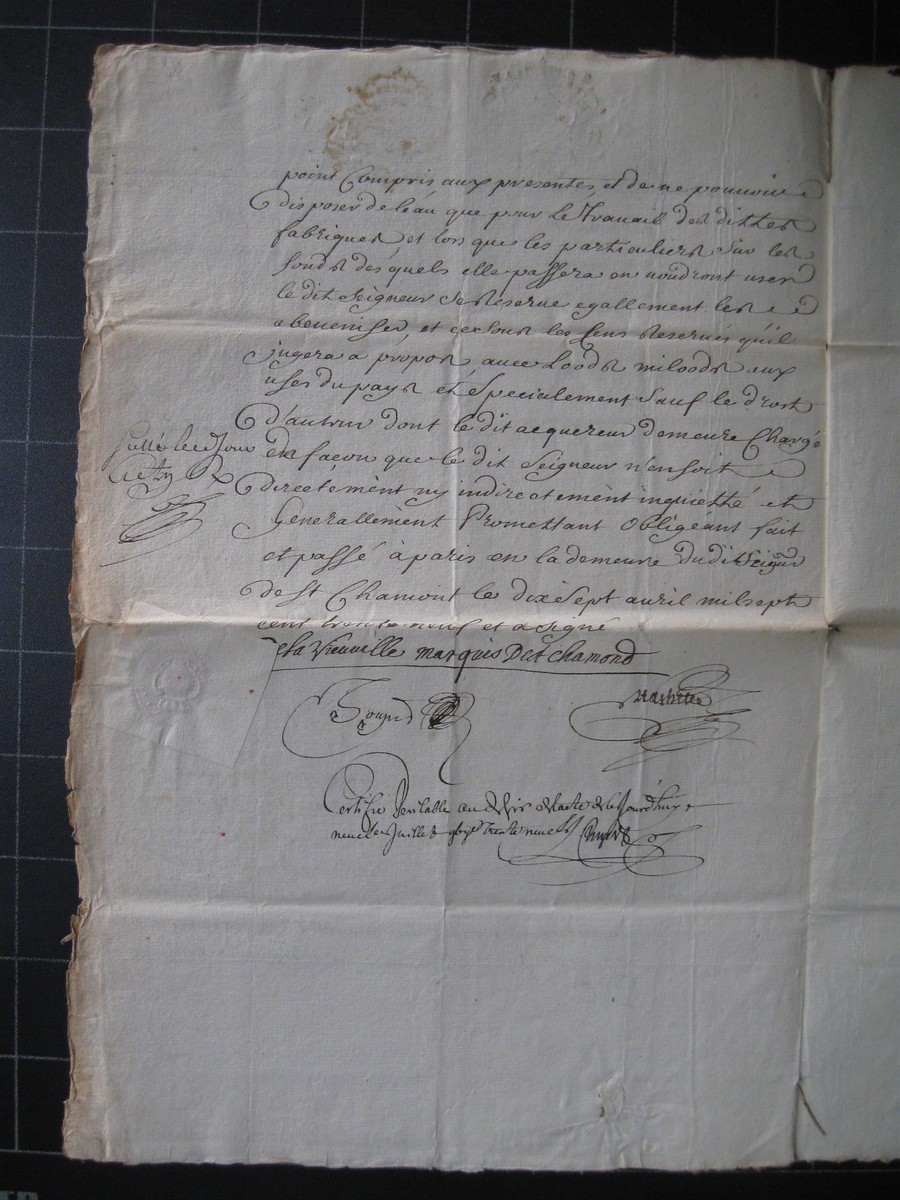 point Compris aux presentes et de ne pouvoir
disposer de leau que pour Le Travail des dittes
fabriques, et lors que les particuliers Sur les
fonds des quels elle passera en voudront user
le dit Seigneur se Reserve egallement les
abeneviser, et ce sous les Cens Reservés qu'il
jugera a propos avec Loods miloods aux
uses du pays et Specialement Sauf le droit
d'autruy dont le dit acquereur demeure Chargé
en façon que le dit Seigneur n'en soit
directement ny indirectement inquietté et
Generallement Promettant Obligeant fait
et passé à paris en la demeure dudit Seigur
de St Chamont le dix Sept avril mil sept
cent trente neuf et a signé
La Vieuville marquis De St Chamond
Certifié Veritable au de l'acte de ce Jourdhuy
neuf Juillet trente neuf